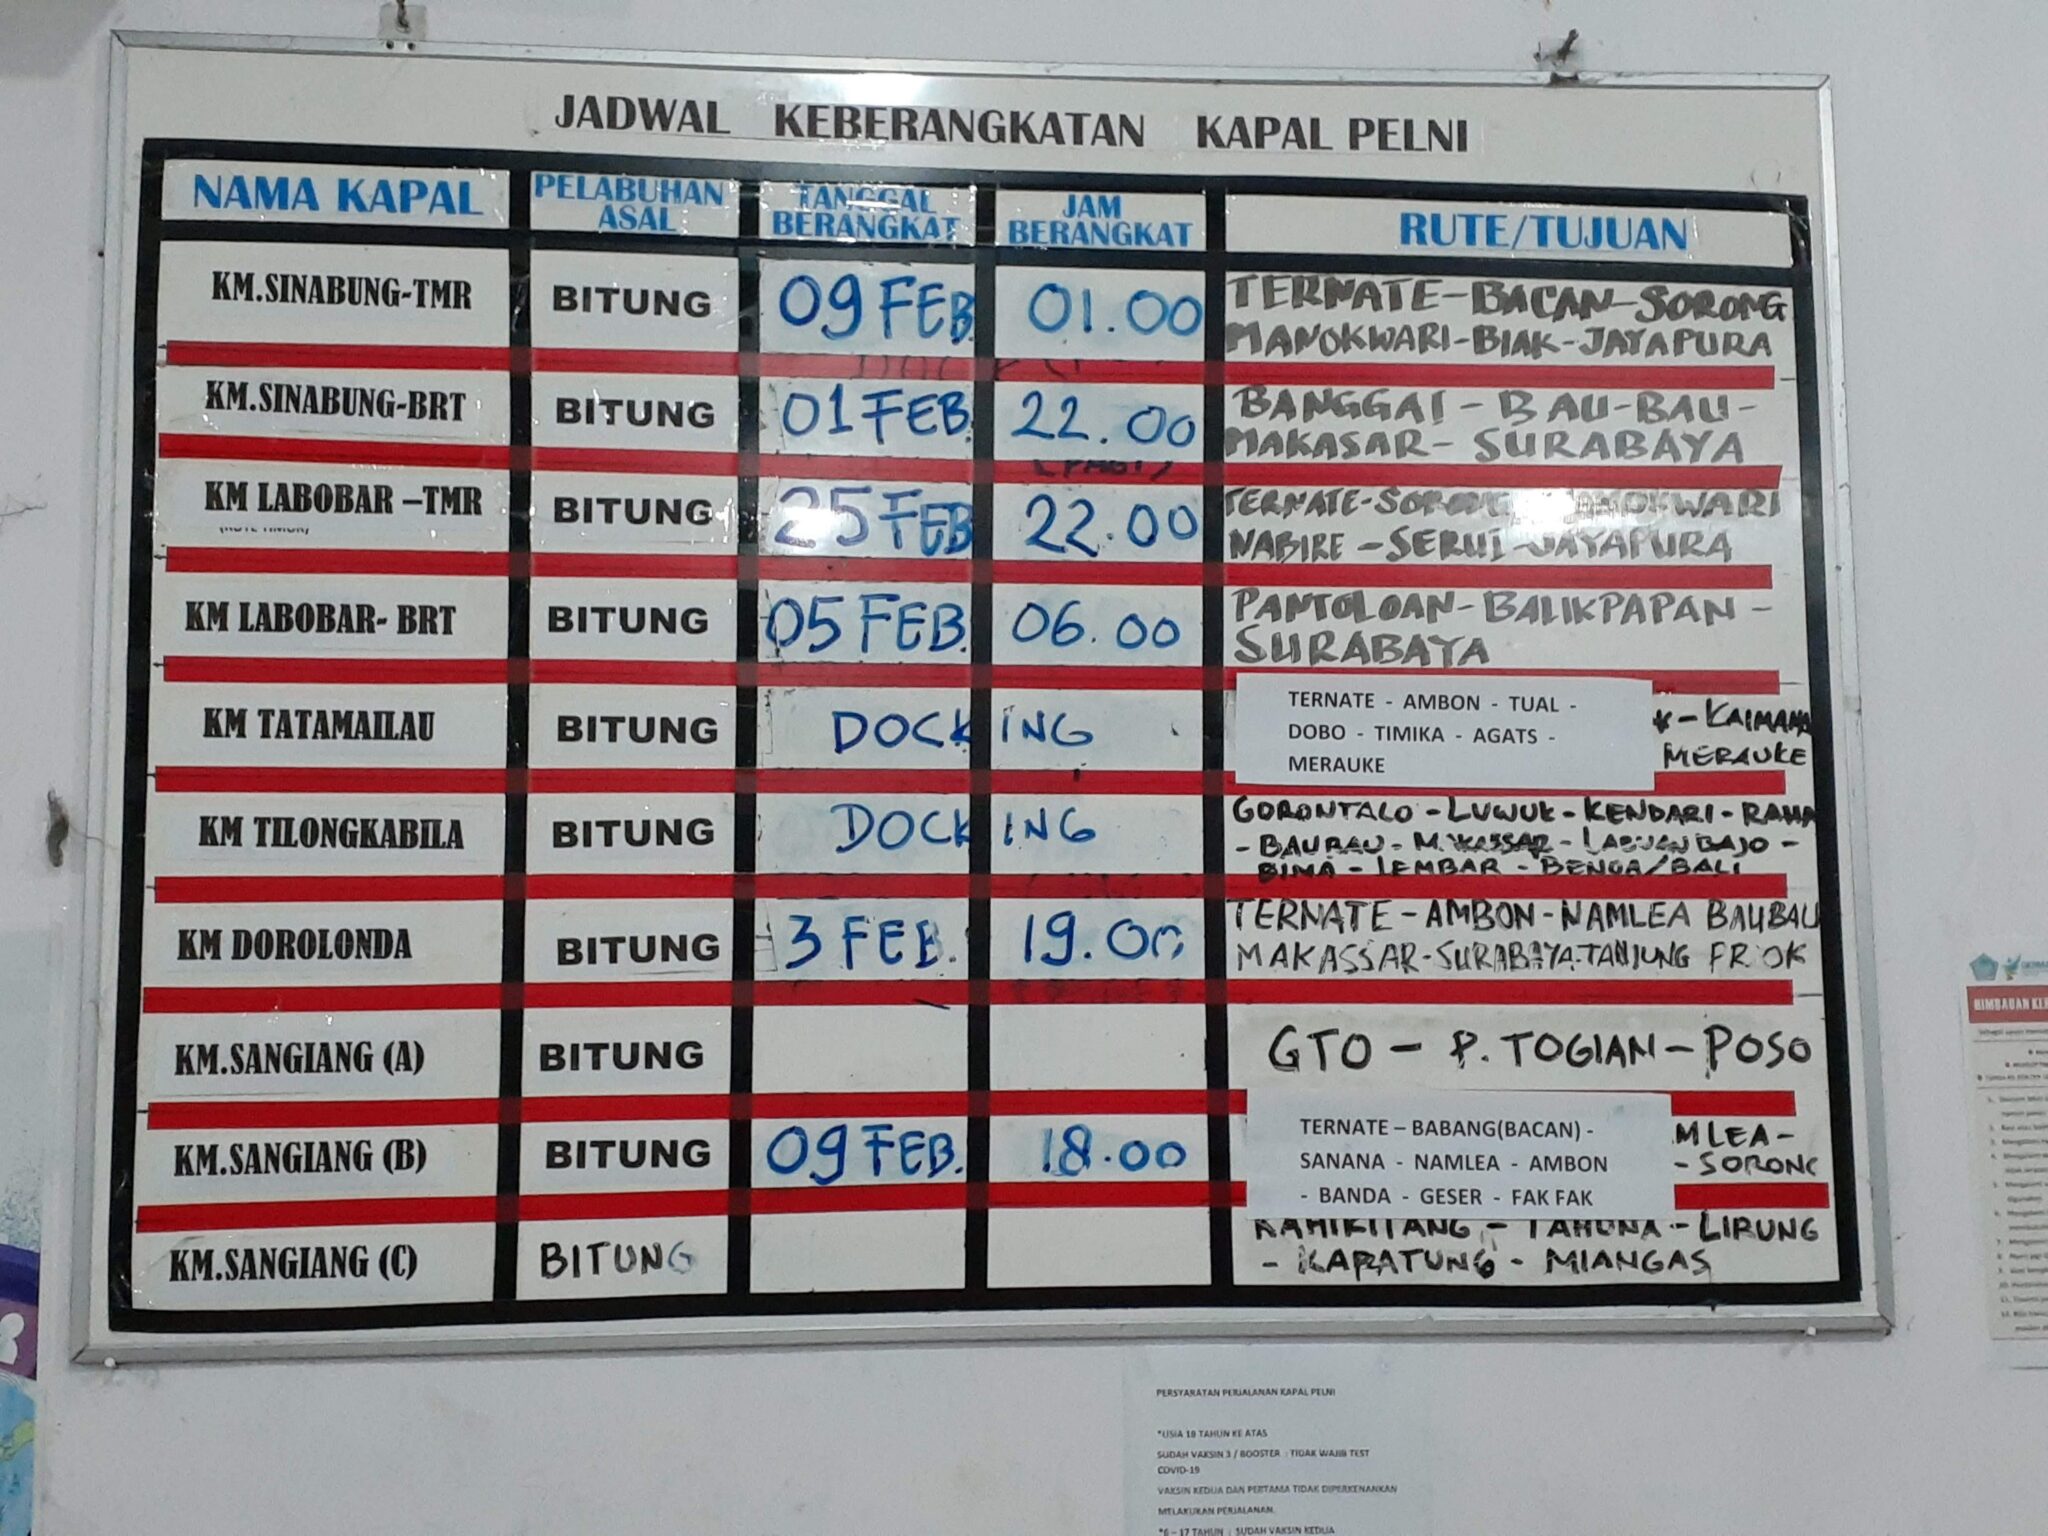 JADWAL KEBERANGKATAN KAPAL PELNI
NAMA KAPAL
PELABUHAN
ASAL
TANGGAL
BERANGKAT
JAM
BERANGKAT
RUTE/TUJUAN
KM.SINABUNG-TMR
BITUNG
09 FEB
01.00
TERNATE-BACAN-SORONG
MANOKWARI-BIAK-JAYAPURA
KM.SINABUNG-BRT
BITUNG
01 FEB.
22.00
BANGGAI - BAU-BAU-
MAKASAR- SURABAYA
(PAGI)
KM LABOBAR –TMR
(RUTE TIMUR)
BITUNG
25 FEB
22.00
TERNATE-SORONG MANOKWARI
NABIRE - SERUI-JAYAPURA
KM LABOBAR- BRT
BITUNG
05 FEB.
06.00
PANTOLOAN-BALIKPAPAN-
SURABAYA
KM TATAMAILAU
BITUNG
DOCKING
TERNATE - AMBON - TUAL -
DOBO - TIMIKA - AGATS -
MERAUKE
- KAIMANA
MERAUKE
KM TILONGKABILA
BITUNG
DOCKING
GORONTALO - LUWUK - KENDARI - RAHA
- BAUBAU - MAKASSAR - LABUANBAJO -
BIMA - LEMBAR - BENOA/BALI
KM DOROLONDA
BITUNG
3 FEB.
19.00
TERNATE-AMBON-NAMLEA BAUBAU
MAKASSAR-SURABAYA-TANJUNG PRIOK
KM.SANGIANG (A)
BITUNG
GTO - P. TOGIAN - POSO
KM.SANGIANG (B)
BITUNG
09 FEB.
18.00
TERNATE – BABANG(BACAN) -
SANANA - NAMLEA - AMBON
- BANDA - GESER - FAK FAK
MLEA-
-SORONG
KM.SANGIANG (C)
BITUNG
KAHIKITANG - TAHUNA - LIRUNG
- KARATUNG - MIANGAS
PERSYARATAN PERJALANAN KAPAL PELNI
*USIA 18 TAHUN KE ATAS
SUDAH VAKSIN 3 / BOOSTER : TIDAK WAJIB TEST
COVID-19
VAKSIN KEDUA DAN PERTAMA TIDAK DIPERKENANKAN
MELAKUKAN PERJALANAN.
*6 – 17 TAHUN : SUDAH VAKSIN KEDUA
HIMBAUAN